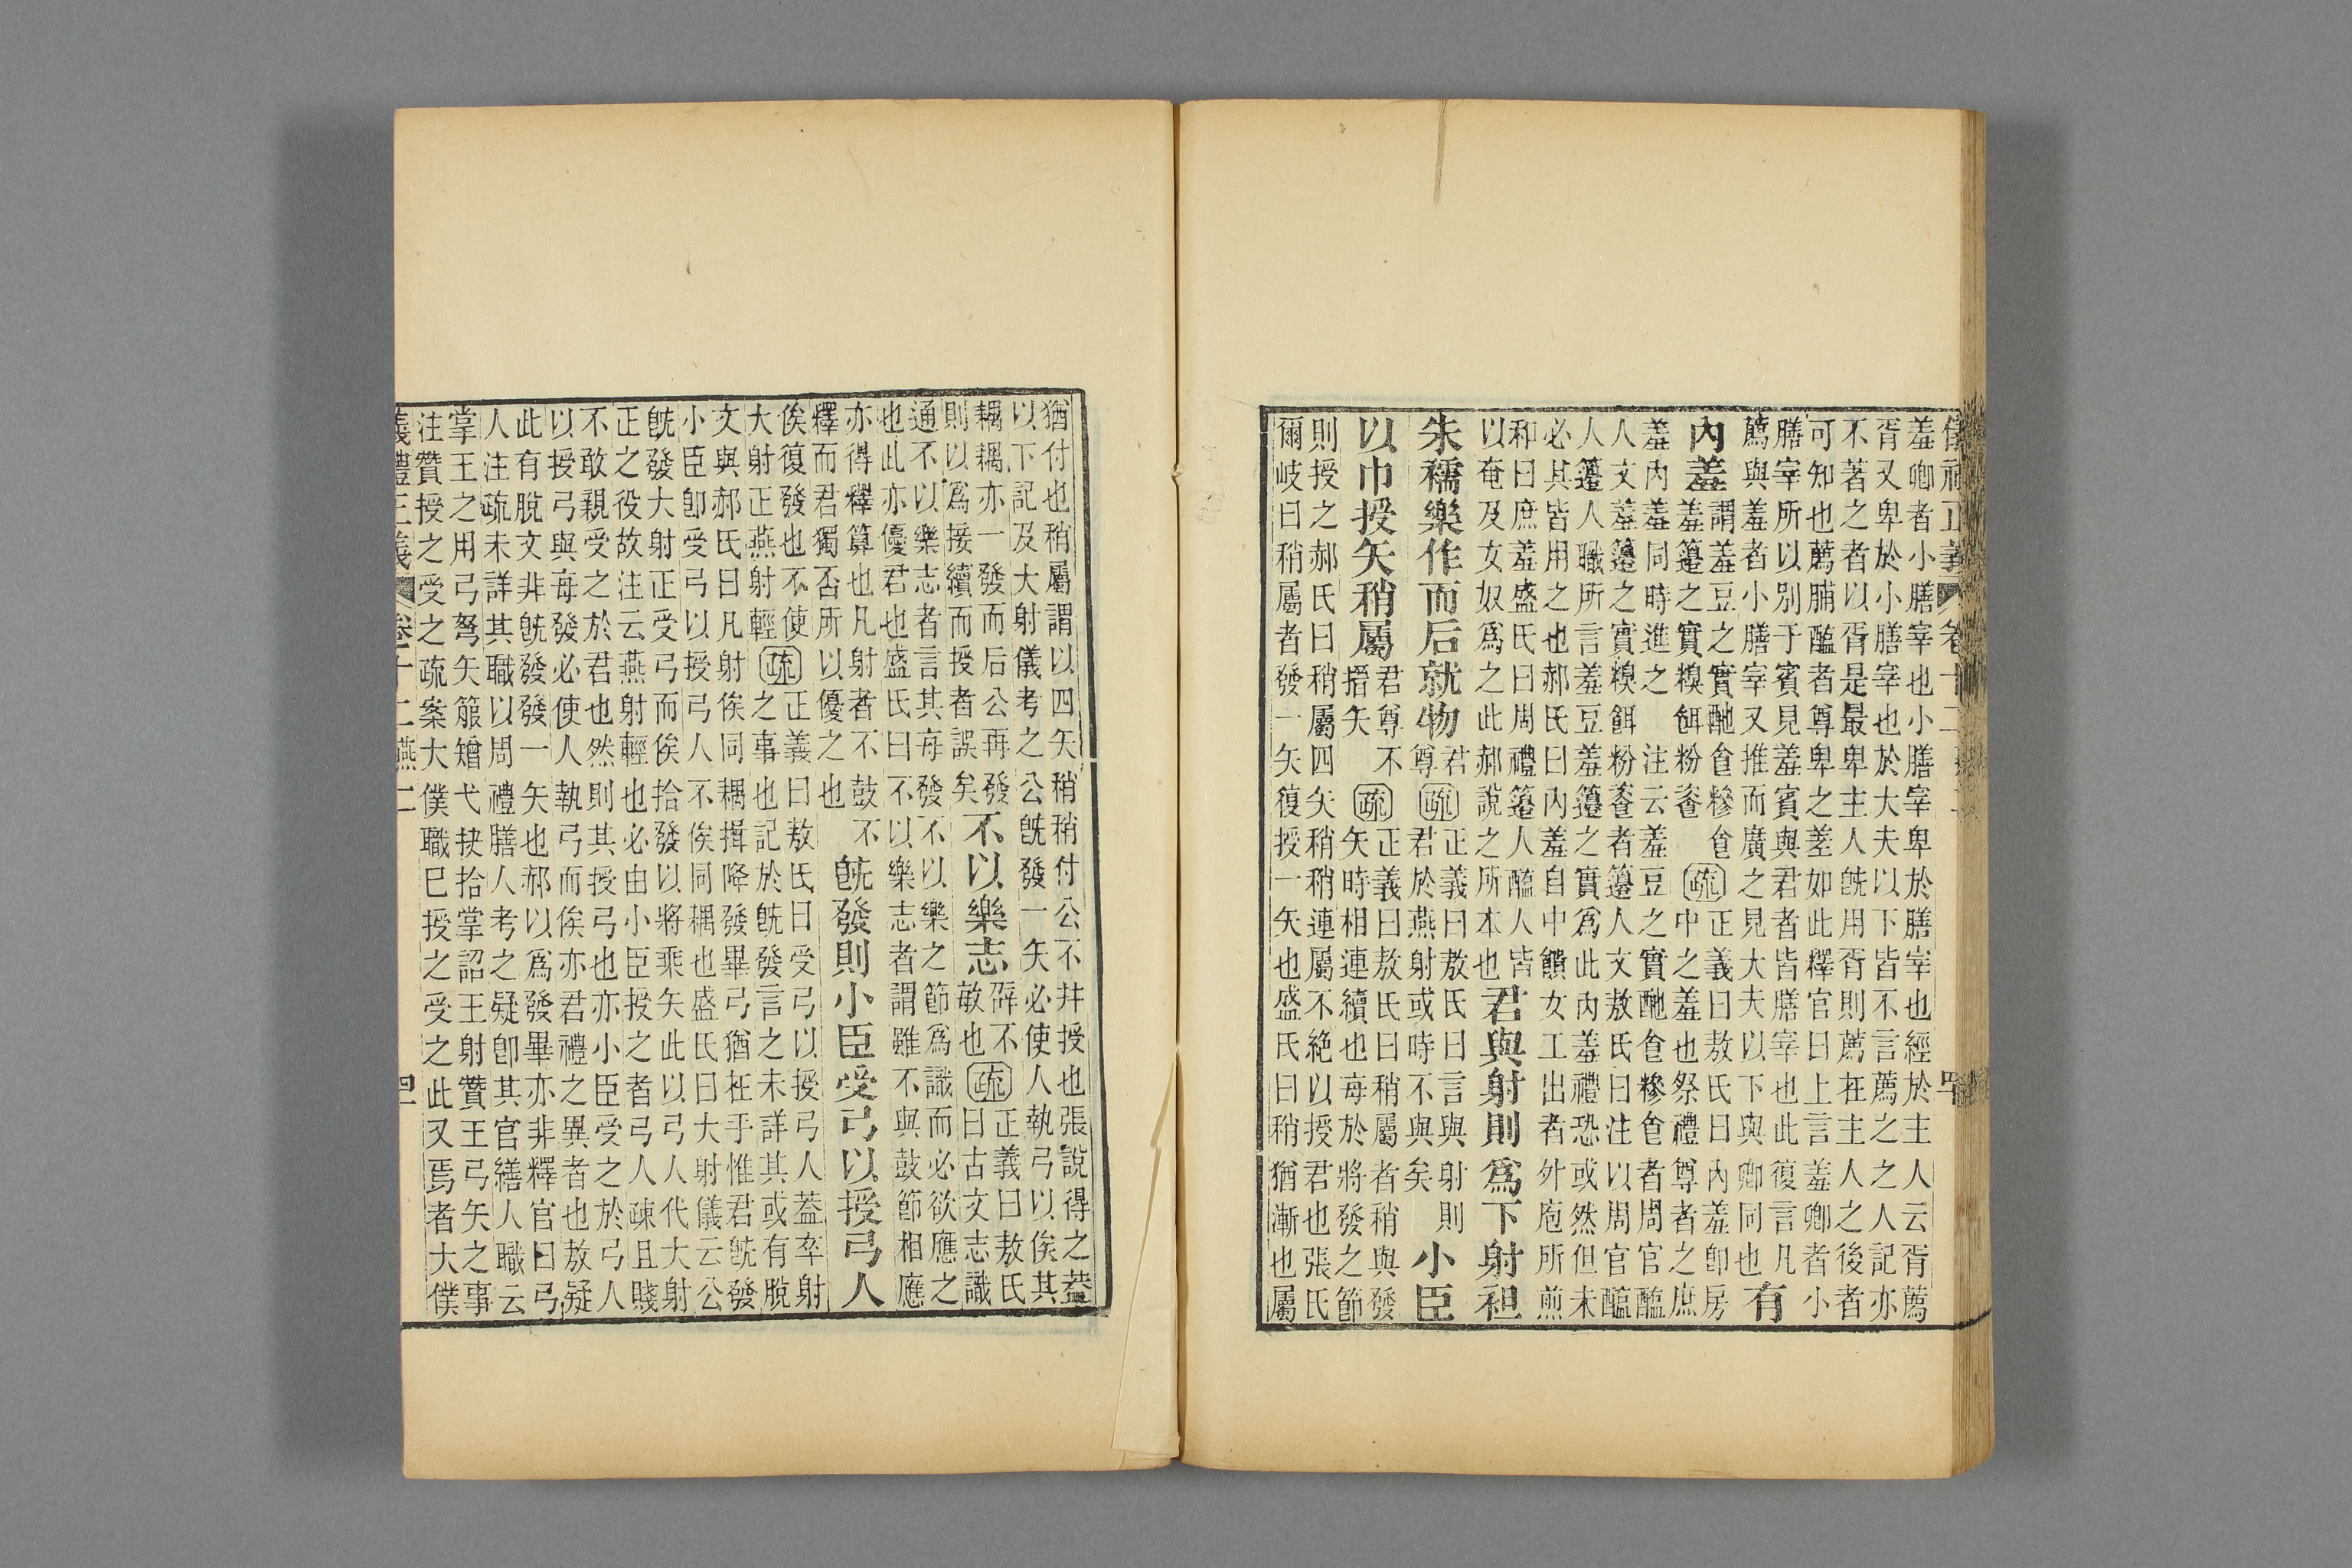 儀禮正義 卷十二
羞卿者小膳宰也小膳宰卑於膳宰也經於主人云胥薦
胥又卑於小膳宰也於大夫以下皆不言薦之之人記亦
不著之者以胥是最卑主人旣用胥則薦在主人之後者
可知也薦脯醢者尊卑之差如此釋官曰上言羞卿者小
膳宰所以別于賓見羞賓與君者皆膳宰也此復言凡
薦與羞者小膳宰又推而廣之見大夫以下與卿同也 有
內羞 謂羞豆之實酏食糝食羞籩之實糗餌粉餈 疏 正義曰敖氏曰內羞卽房中之羞也祭禮尊者之庶
羞內羞同時進之 注云羞豆之實酏食糝食者周官醢
人文羞籩之實糗餌粉餈者籩人文敖氏曰注以周官醢
人籩人職所言羞豆羞籩之實爲此內羞禮恐或然但未
必其皆用之也郝氏曰內羞自中饋女工出者外庖所煎
和曰庶羞盛氏曰周禮籩人醢人皆
以奄及女奴爲之此郝說之所本也 君與射則爲下射袒
朱襦樂作而后就物 君尊 疏 正義曰敖氏曰言與射則君於燕射或時不與矣 小臣
以巾授矢稍屬 君尊不搢矢 疏 正義曰敖氏曰稍屬者稍與發矢時相連續也每於將發之節
則授之郝氏曰稍屬四矢稍稍連屬不絕以授君也張氏
爾岐曰稍屬者發一矢復授一矢也盛氏曰稍猶漸也屬
猶付也稍屬謂以四矢稍稍付公不幷授也張說得之葢
以下記及大射儀考之公旣發一矢必使人執弓以俟其
耦耦亦一發而后公再發
則以爲接續而授者誤矣 不以樂志 辟不敏也 疏 正義曰敖氏曰古文志識
通不以樂志者言其每發不以樂之節爲識而必欲應之
也此亦優君也盛氏曰不以樂志者謂雖不與鼓節相應
亦得釋算也凡射者不鼓不
釋而君獨否所以優之也 旣發則小臣受弓以授弓人
俟復發也不使大射正燕射輕 疏 正義曰敖氏曰受弓以授弓人葢卒射之事也記於旣發言之未詳其或有脫
文與郝氏曰凡射俟同耦揖降發畢弓猶在手惟君旣發
小臣卽受弓以授弓人不俟同耦也盛氏曰大射儀云公
旣發大射正受弓而俟拾發以將乘矢此以弓人代大射
正之役故注云燕射輕也必由小臣授之者弓人疎且賤
不敢親受之於君也然則其授弓也亦小臣受之於弓人
以授弓與每發必使人執弓而俟亦君禮之異者也敖疑
此有脫文非旣發發一矢也郝以爲發畢亦非釋官曰弓
人注疏未詳其職以周禮膳人考之疑卽其官繕人職云
掌王之用弓弩矢箙矰弋抉拾掌詔王射贊王弓矢之事
注贊授之受之疏案大僕職已授之受之此又焉者大僕
儀禮正義 卷十二燕二